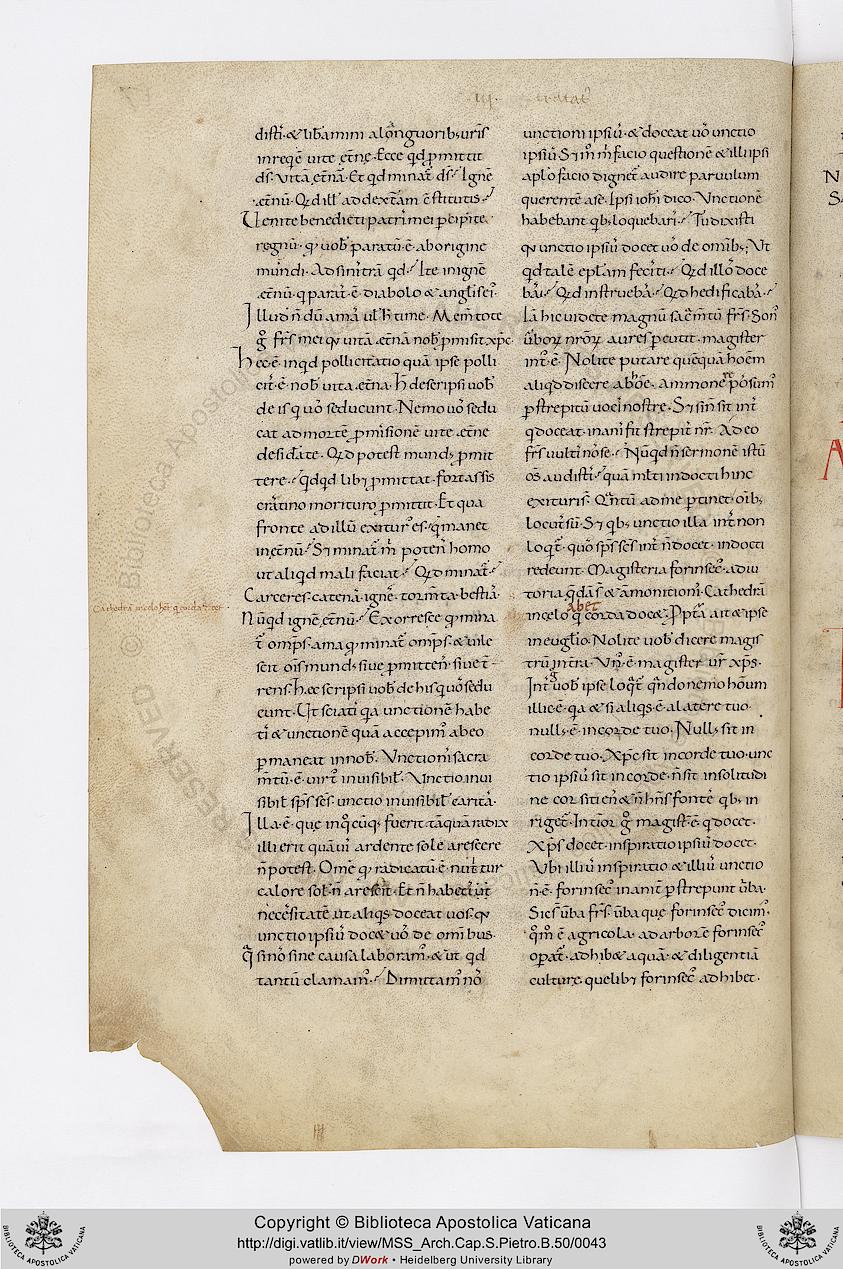 disti·& libamini alonguorib; uris̄
inreq̄ē uite ęt̄nę·Ecce qđ ꝓmittit
ds̄·uitā ęt̄nā·Et qđ minat̄ ds̄· Ignē
ęt̄nū·Qd ill̄ ad dext̄am c̄stitutis·
Venite benedicti patris mei ꝑcipite
regnū· qđ uob̄ paratū·ē·aborigine
mundi·Ad sinistrā qđ· Ite in ignē
ęt̄nū·q̄ parat̄·ē·diabolo & anglis̄ ei·
Illud n̄ dū amas ul̄ h̄ time·Mem̄tote
g̊ frs̄ mei qđ uitā·ęt̄nā nob̄ ꝓmisit xp̄c·
hec·ē·inqđ pollicitatio quā ipse polli
cit̄·ē·nob̄ uita·ęt̄na·h̄ descripsi uob̄
de is q̄ uos seducunt·Nemo uos sedu
cat ad mortē ꝓmisionē uite·ęt̄ne
desiđate·Qd potest mund; ꝓmit
tere· qđqđ lib; ꝓmittat·fortassis
crastino morituro ꝓmittit·Et qua
fronte ad illū exitur̄ es·q̄ manet
inęt̄nū·Sꝫ minat̄ m̄ potens homo
ut aliqđ mali faciat·Qd minat̄·
Carceres·catenā·ignē·torm̄ta·bestiā·
Nūqđ ignē ęt̄nū·Exorresce q̄ mina
t̄ omp̄s·ama q̄ minat̄ omp̄s·& uile
scit om̄s mund; siue ꝓmitten̄·siue t̄
rens·hęc scripsi uob̄ de his q̄ uos sedu
cunt·Ut sciati q̄a unctionē habe
ti & unctionē quā accepim̄ abeo
ꝑmaneat in nob̄·Unctionis sacra
m̄tū·ē·uirt̄ inuisibil̄·Unctio inui
sibil̄ sp̄s sc̄s·unctio inuisibil̄ carita·
Illa·ē·que inq̄ cūq; fuerit tāquā radix
illi erit quā uis ardente sole arescere
n̄ potest·Om̄e qđ radicatū·ē·nut̄tur
calore sol̄·n̄ arescit·Et n̄ habeti ut
necēsitatē ut aliqs doceat uos·qđ
unctio ipsiu doc& uo de omnibus·
q̄ sinos sine causa laboram̄·& ut qđ
tantū clamam̄· Dimittam̄ uos
unctioni ipsiu·& doceat uos unctio
ipsiu Sꝫ m̊ m̄ facio questionē & illi ipsi
aplo facio dignet̄ audire paruulum
querentē ase·Ipsi iohi dico·Unctionē
habebant qb; loquebaris· Tu dixisti
qđ unctio ipsiu docet uos de om̄ib; Ut
qđ talē epl̄am fecisti·Qd illos doce
bas·Qd instruebas·Qd hedificabas·
Iā hic uidete magnū sac̄m̄tū frs̄·Son̄
ūborꝫ nrōrꝫ aures ꝑcutit·magister
int̄·ē·Nolite putare quēquā hoēm
aliqđ discere abhoē·ammonere pōsum̄
ꝑ strepitū uocis nostre·Sꝫ si n̄ sit int̄
q̄ doceat·inanis fit strepit̄ nr̄·Adeo
frs̄ uulti nose·Nūqđ n̄ sermonē istū
oms̄ audisti·quā m̄lti indocti hinc
exituri s̄·Quantū ad me ꝑtinet·omib;
locut̄ sū·Sꝫ qb; unctio illa int̄ non
loqt̄·quos sp̄s sc̄s int̄ n̄ docet·indocti
redeunt·Magisteria forinsec̄·adiu
toria q̄dā s̄ & amonitioni·Cathedrā
abet
incelo q̄ corda doc&·Ppt̄a ait & ipse
in euglio·Nolite uob̄ dicere magis
trū in tra·Un̄·ē·magister ur̄ xp̄s·
Int̄ g̊ uob̄ ipse loqt̄ q̄ndo nemo hoīum
illic·ē·q̄a & si aliqs·ē·alatere tuo
null;·ē·in corde tuo·Null; sit in
corde tuo·Xp̄c sit in corde tuo·unc
tio ipsiu sit in corde·n̄ sit in solitudi
ne cor siti en̄ & n̄ hn̄s fontē qb; in
riget̄·Int̄ior g̊ magist̄·ē·q̄ docet·
Xp̄s docet·inspiratio ipsiu docet·
Ubi illiu inspiratio & illiu unctio
n̄·ē·forinsec̄ inanit̄ ꝑstrepunt ūba·
Sic s̄ ūba frs̄·ūba que forinsec̄ dicim̄·
q̊m̊ ē agricola·ad arborē forinsec̄
oꝑat̄·adhib& aquā·& diligentiā
culture·quelib; forinsec̄ adhibet·
Cathedrā in celo h̄et q̄ corda docet
Copyright © Biblioteca Apostolica Vaticana
http://digi.vatlib.it/view/MSS_Arch.Cap.S.Pietro.B.50/0043
powered by DWork • Heidelberg University Library